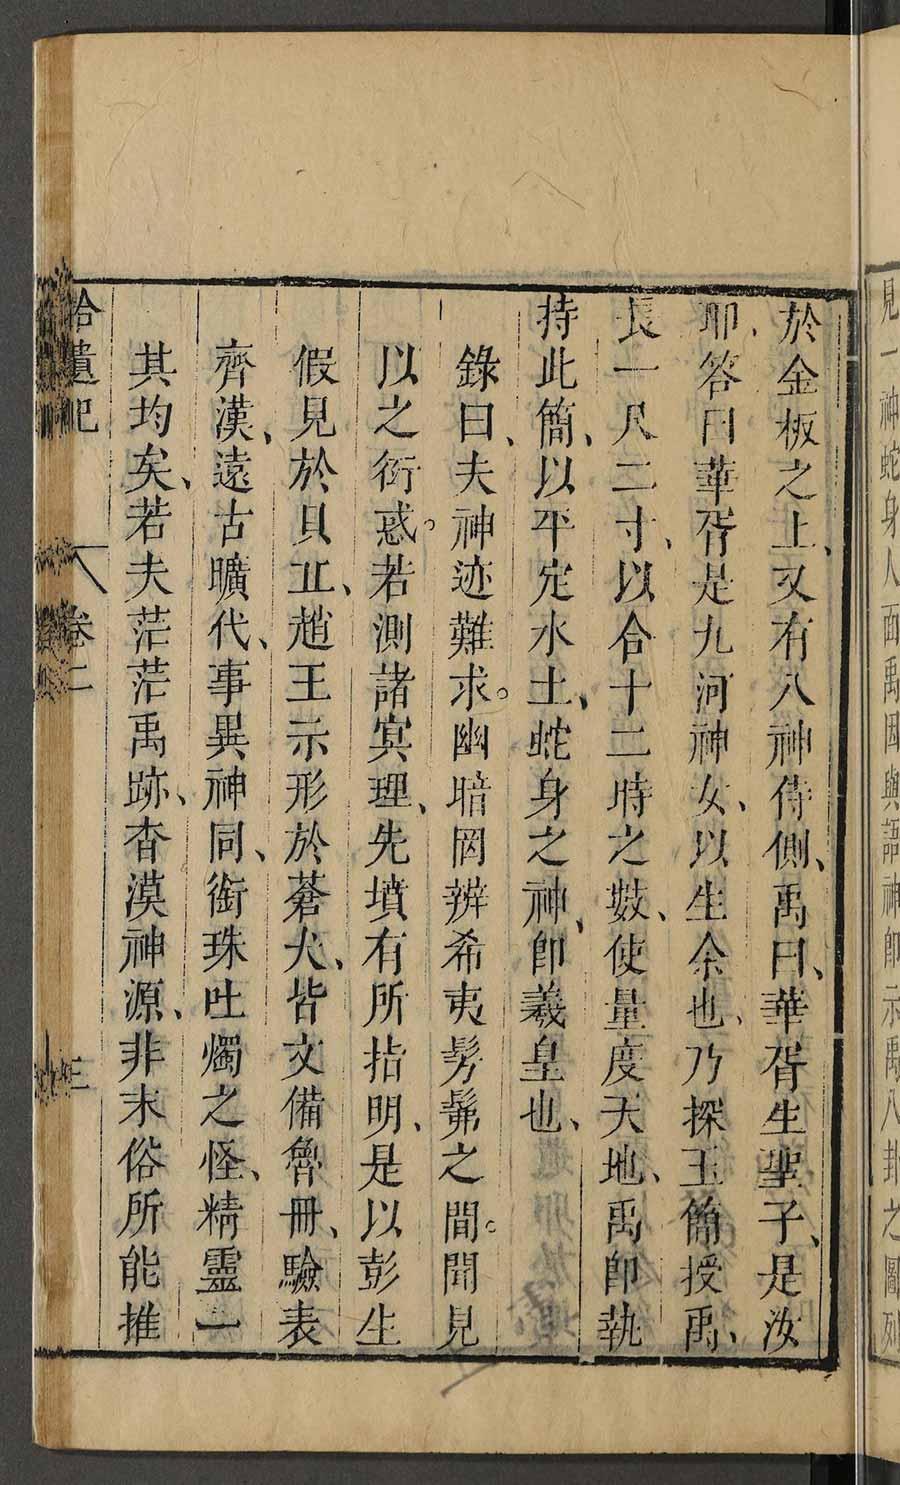 見一神蛇身人面禹因與語神卽示禹八卦之圖列
於金板之上又有八神侍側禹曰華胥生聖子是汝
耶答曰華胥是九河神女以生余也乃探玉簡授禹
長一尺二寸以合十二時之數使量度天地禹卽執
持此簡以平定水土蛇身之神卽羲皇也
錄曰夫神迹難求幽暗罔辨希夷髣髴之間聞見
以之衒惑若測諸㝠理先墳有所指明是以彭生
假見於貝丘趙王示形於蒼犬皆文備魯冊驗表
齊漢遠古曠代事異神同銜珠吐燭之怪精靈一
其均矣若夫茫茫禹跡杳漠神源非末俗所能推
拾遺記 卷二 三